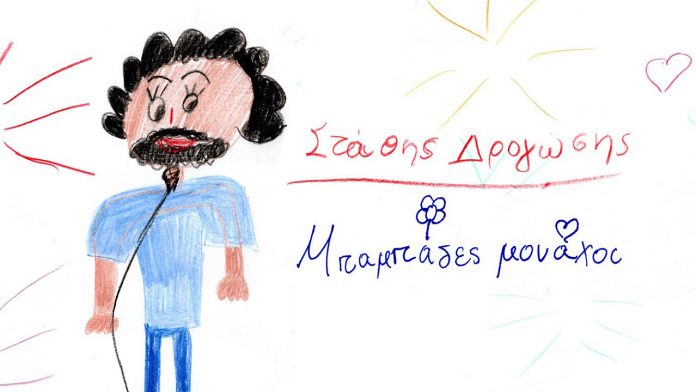 Στάθης Δρογώσης
Μπαμπάδες μονάχος